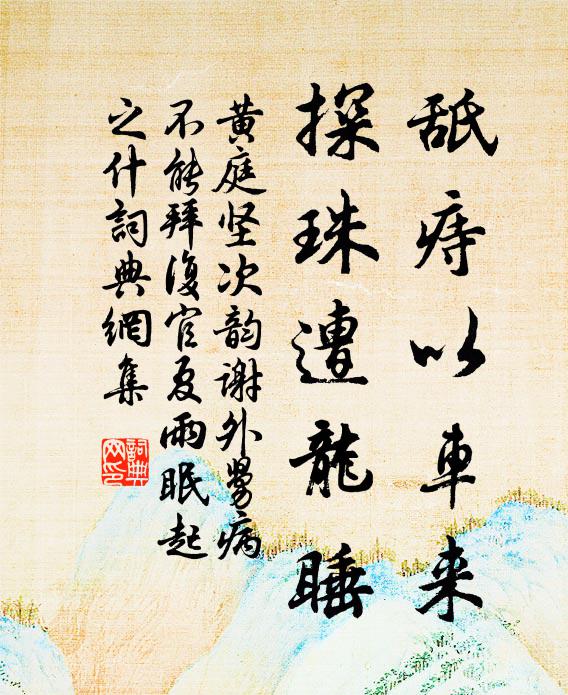 舐痔以車来
探珠遭龍睡
黄庭坚次韵谢外舅病
不能拜復官夏雨眠起
之什詞典網集
詞典網印